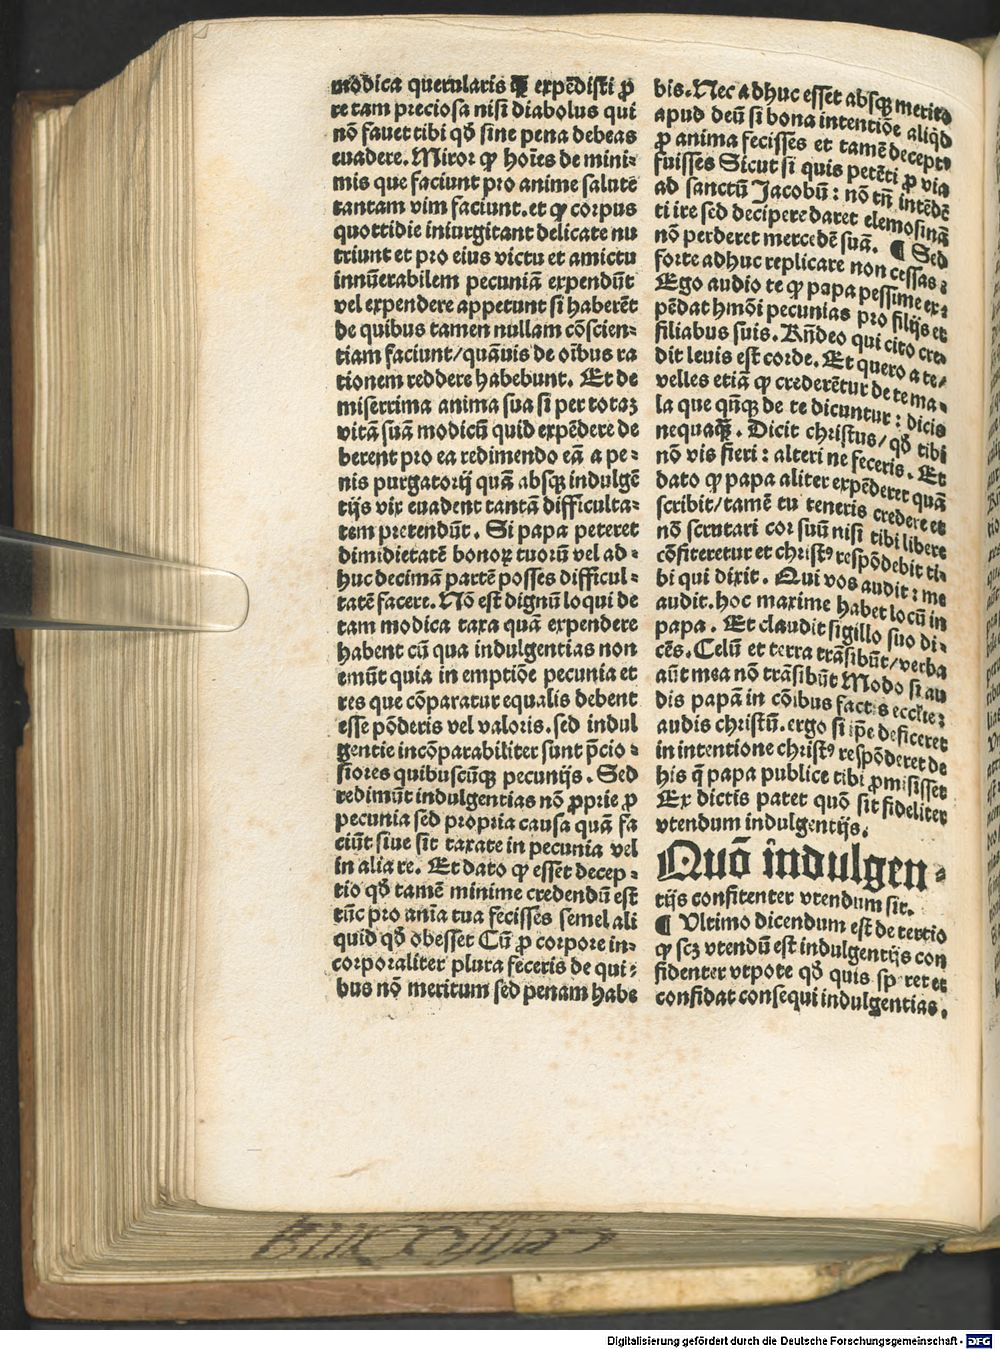 modica querularis ꝙ expēdisti ꝓ
re tam preciosa nisi diabolus qui
nō fauet tibi qđ sine pena debeas
euadere. Miror ꝙ hoīes de mini-
mis que faciunt pro anime salute
tantam vim faciunt. et ꝙ corpus
quottidie iniurgitant delicate nu
triunt et pro eius victu et amictu
innūerabilem pecuniā expendūt
vel expendere appetunt si haberēt
de quibus tamen nullam cōscien-
tiam faciunt/quāuis de oībus ra
tionem reddere habebunt. Et de
miserrima anima sua si per totaꝫ
vitā suā modicū quid expēdere de
berent pro ea redimendo eā a pe-
nis purgatorij quā absqꝫ indulgē
tijs vix euadent tantā difficulta-
tem pretendūt. Si papa peteret
dimidietatē bonoꝝ tuorū vel ad-
huc decimā partē posses difficul-
tatē facere. Nō est dignū loqui de
tam modica taxa quā expendere
habent cū qua indulgentias non
emūt quia in emptiōe pecunia et
res que cōparatur equalis debent
esse pōderis vel valoris. sed indul
gentie incōparabiliter sunt p̄cio-
siores quibuscūqꝫ pecunijs. Sed
redimūt indulgentias nō ꝓprie ꝓ
pecunia sed propria causa quā fa
ciūt siue sit taxate in pecunia vel
in alia re. Et dato ꝙ esset decep-
tio qđ tamē minime credendū est
tūc pro anīa tua fecisses semel ali
quid qđ obesset Cū ꝓ corpore in-
corporaliter plura feceris de qui-
bus nō meritum sed penam habe
bis. Nec adhuc esset absqꝫ merito
apud deū si bona intentiōe aliqđ
ꝓ anima fecisses et tamē deceptꝰ
fuisses Sicut si quis petēti ꝓ via
ad sanctū Jacobū: nō tn̄ intēdē
ti ire sed decipere daret elemosinā
nō perderet mercedē suā. ¶ Sed
forte adhuc replicare non cessas:
Ego audio te ꝙ papa pessime ex-
pēdat hmōi pecunias pro filijs et
filiabus suis. Rn̄deo qui cito cre-
dit leuis est corde. Et quero a te/
velles etiā ꝙ crederētur de te ma-
la que qn̄qꝫ de te dicuntur: dicis
nequaꝙ̄. Dicit christus/ qđ tibi
nō vis fieri: alteri ne feceris. Et
dato ꝙ papa aliter expēderet quā
scribit/tamē tu teneris credere et
nō scrutari cor suū nisi tibi libere
cōfiteretur et christꝰ respōdebit ti-
bi qui dixit. Qui vos audit: me
audit. hoc maxime habet locū in
papa. Et claudit sigillo suo di-
cēs. Celū et terra trāsibūt/verba
aūt mea nō trāsibūt Modo si au
dis papā in cōibus factis ecclie:
audis christū. ergo si ip̄e deficeret
in intentione christꝰ respōderet de
his q̄ papa publice tibi ꝓmisisset
Ex dictis patet quō sit fideliter
vtendum indulgentijs.
Quō indulgen-
tijs confitenter vtendum sit.
¶ Vltimo dicendum est de tertio
ꝙ scꝫ vtendū est indulgentijs con
fidenter vtpote qđ quis sp ret et
confidat consequi indulgentias.
Digitalisierung gefördert durch die Deutsche Forschungsgemeinschaft - DFG